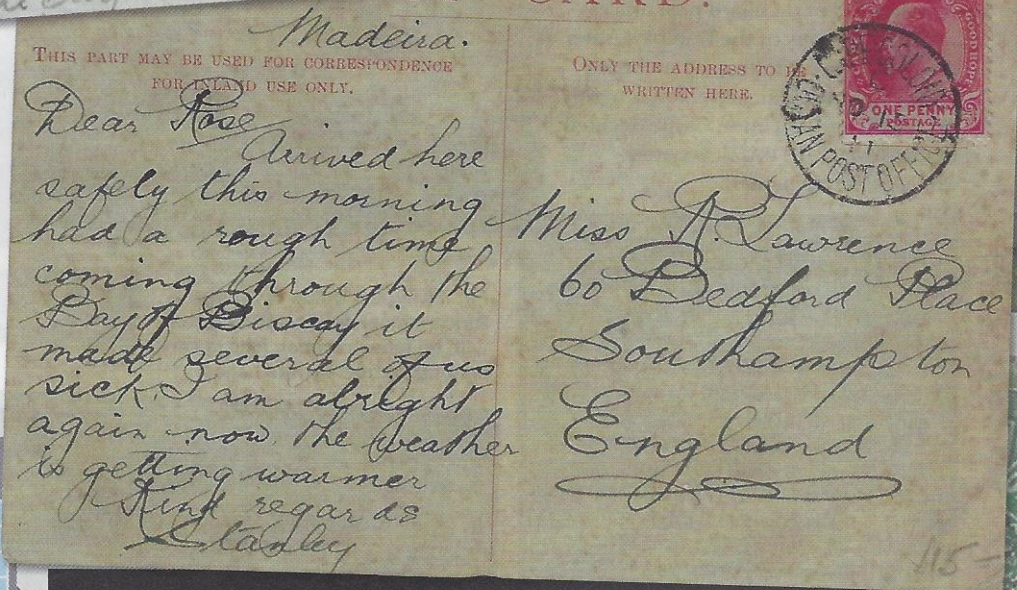 CARD.
Madeira.
THIS PART MAY BE USED FOR CORRESPONDENCE
FOR INLAND USE ONLY.
Dear Rose
Arrived here
safely this morning
had a rough time
coming through the
Bay of Biscay it
made several of us
sick. I am alright
again now the weather
is getting warmer
Kind regards
Stanley
ONLY THE ADDRESS TO BE
WRITTEN HERE.
GOOD HOPE
ONE PENNY
POSTAGE
POST OFFICE
Miss R. Lawrence
60 Bedford Place
Southampton
England
115-